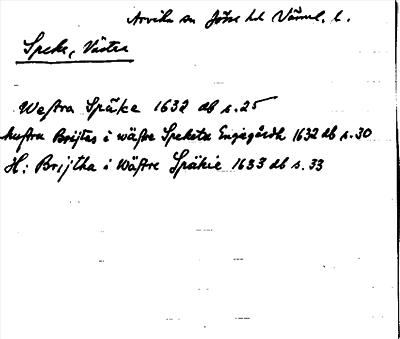 Arvika sn Jösse hd Värml. l.
Speke, Västra
Westra Späke 1632 db s. 25
hustru Brijtas i wästre Speketa Engegårdh 1632 db s. 30
H: Brijtha i Wästre Späkie 1633 db s. 33